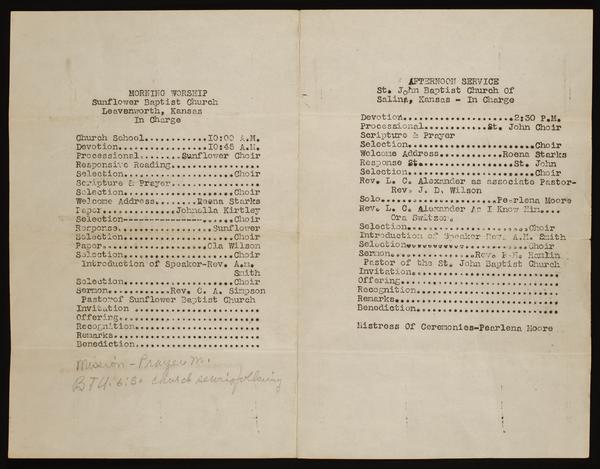 MORNING WORSHIP
Sunflower Baptist Church
Leavenworth, Kansas
In Charge
Church School............10:00 A.M.
Devotion.................10:45 A.M.
Processional........Sunflower Choir
Responsive Reading................
Selection....................Choir
Scripture & Prayer................
Selection....................Choir
Welcome Address........Roena Starks
Paper.............Johnella Kirtley
Selection--------------------Choir
Response.................Sunflower
Selection....................Choir
Paper...................Ola Wilson
Selection....................Choir
Introduction of Speaker-Rev. A.M.
Smith
Selection....................Choir
Sermon...........Rev. C. A. Simpson
Pastorof Sunflower Baptist Church
Invitation .......................
Offering..........................
Recognition.......................
Remarks...........................
Benediction.......................
Mission - Prayer M.
BTU. 6:30 church service following
AFTERNOON SERVICE
St. John Baptist Church Of
Salina, Kansas - In Charge
Devotion....................2:30 P.M.
Processional............St. John Choir
Scripture & Prayer
Selection.......................Choir
Welcome Address............Roena Starks
Response St.................St. John
Selection.......................Choir
Rev. L. C. Alexander as associate Pastor-
Rev. J. D. Wilson
Solo.....................Pearlena Moore
Rev. L. C. Alexander As I Know Him....
Ora Switzer.
Selection......................Choir
Introduction of Speaker-Rev. A.M. Smith
Selection......................Choir
Sermon................Rev. Hamlin
Pastor of the St. John Baptist Church
Invitation...........................
Offering.............................
Recognition..........................
Remarks..............................
Benediction..........................
Mistress Of Ceremonies-Pearlena Moore